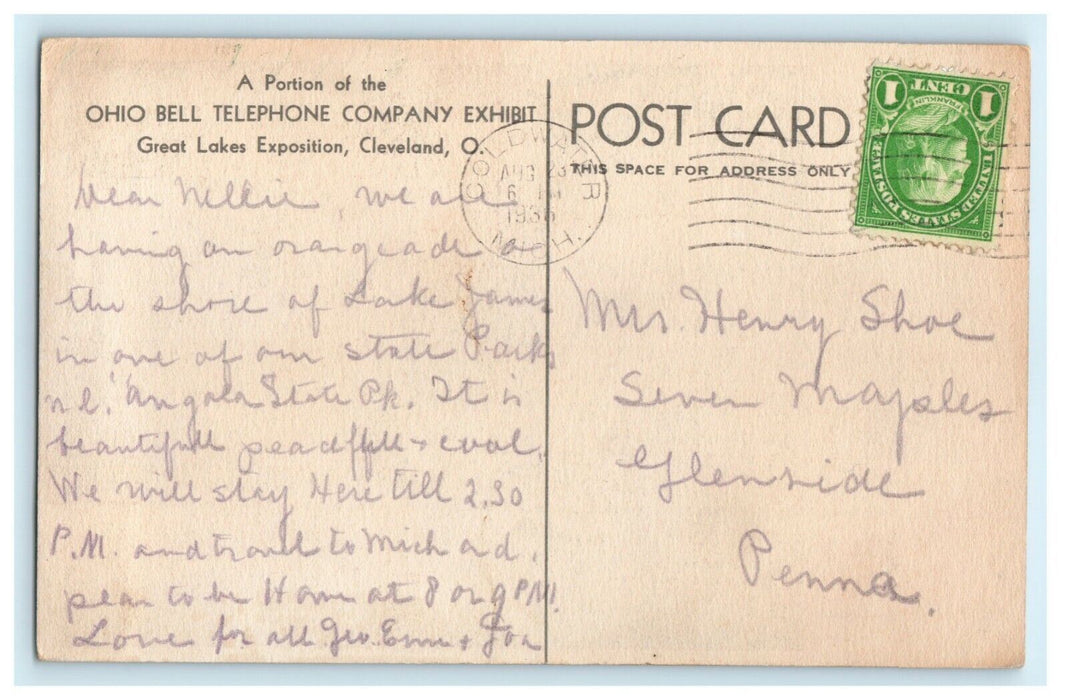 A Portion of the
OHIO BELL TELEPHONE COMPANY EXHIBIT
Great Lakes Exposition, Cleveland, O.
POST CARD
THIS SPACE FOR ADDRESS ONLY
COLDWATER
AUG 23
6 PM
1936
MICH.
1 CENT 1
FRANKLIN
UNITED STATES POSTAGE
Dear Nellie, we are
having an orangeade on
the shore of Lake James
in one of our State Parks
"Angola State Pk. It is
beautifull peacefull & cool.
We will stay Here till 2.30
P.M. and travel to Mich and
plan to be Home at 8 or 9 P.M.
Love for all Geo. Em &
Mrs. Henry Shoe
Seven Maples
Glenside
Penna.